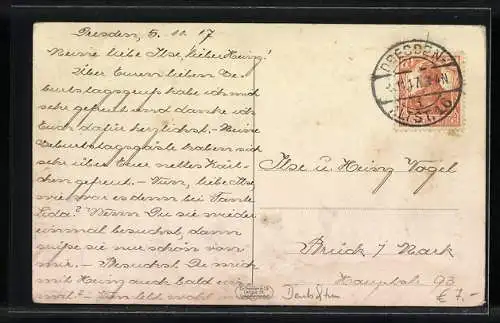 Dresden, 5. 10. 17
Meine liebe Ilse, lieber Heinz!
Über Euren lieben Ge-
burtstagsgruß habe ich mich
sehr gefreut und danke ich
Euch dafür herzlichst. – Meine
Geburtstagsgäste haben sich
sehr über Euer nettes Kärt-
chen gefreut. – Nun, liebe Ilse,
wie war es denn bei Tante
Lida? Wenn Du sie wieder
einmal besuchst, dann
grüße sie nur schön von
mir. – Besuchst Du mich
mit Heinz auch bald ein-
mal? –
DRESDEN-
ALTST. 16
Ilse u. Heinz Vogel
Brück / Mark
Hauptstr. 93
€ 7.-